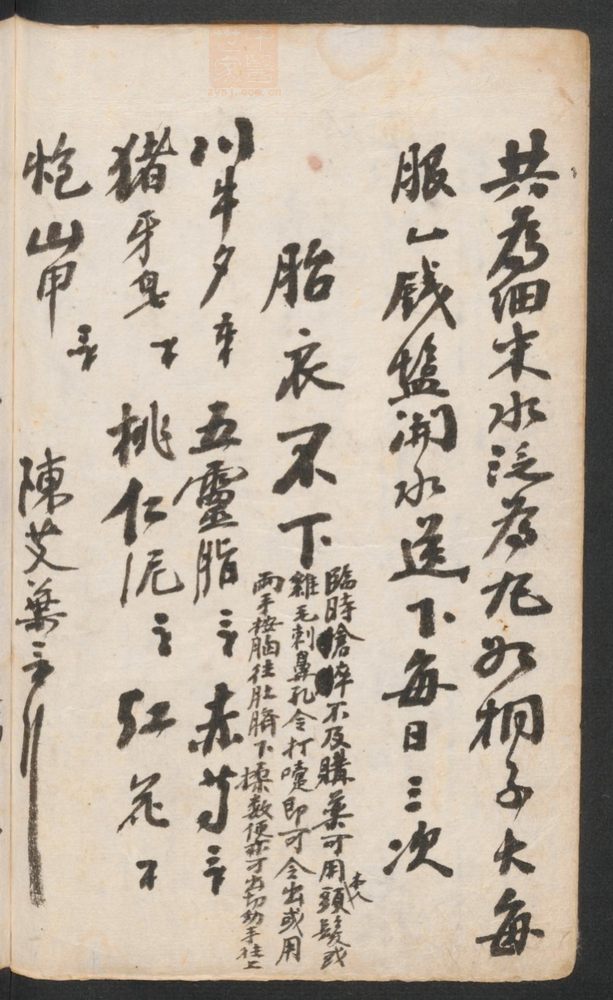 共為細末水泛為丸如桐子大每
服一錢盐開水送下每日三次
胎衣不下
臨時愴猝不及購藥可用本人頭髮或
雞毛刺鼻孔令打嚏即可令出或用
兩手按胸往肚臍下揉數便亦可出切勿手往上
川牛夕 五靈脂 赤芍
猪牙皂 桃仁泥 紅花
炮山甲 陳艾葉